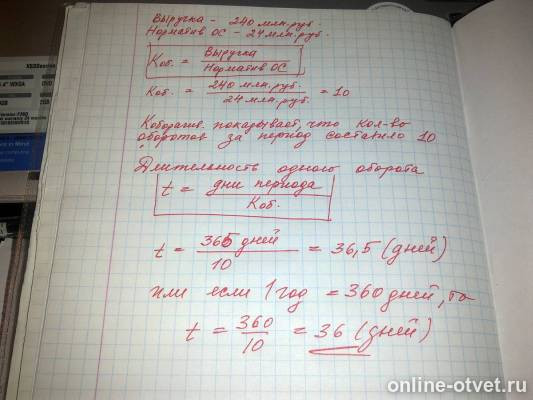 Выручка - 240 млн.руб.
Норматив ОС - 24 млн.руб.
Коб. = Выручка / Норматив ОС
Коб. = 240 млн.руб. / 24 млн.руб. = 10
показывает, что кол-во
оборотов за период составило 10
Длительность одного оборота
t = дни периода / Коб.
t = 365 дней / 10 = 36,5 (дней)
или если 1 год = 360 дней, то
t = 360 / 10 = 36 (дней)
online-otvet.ru